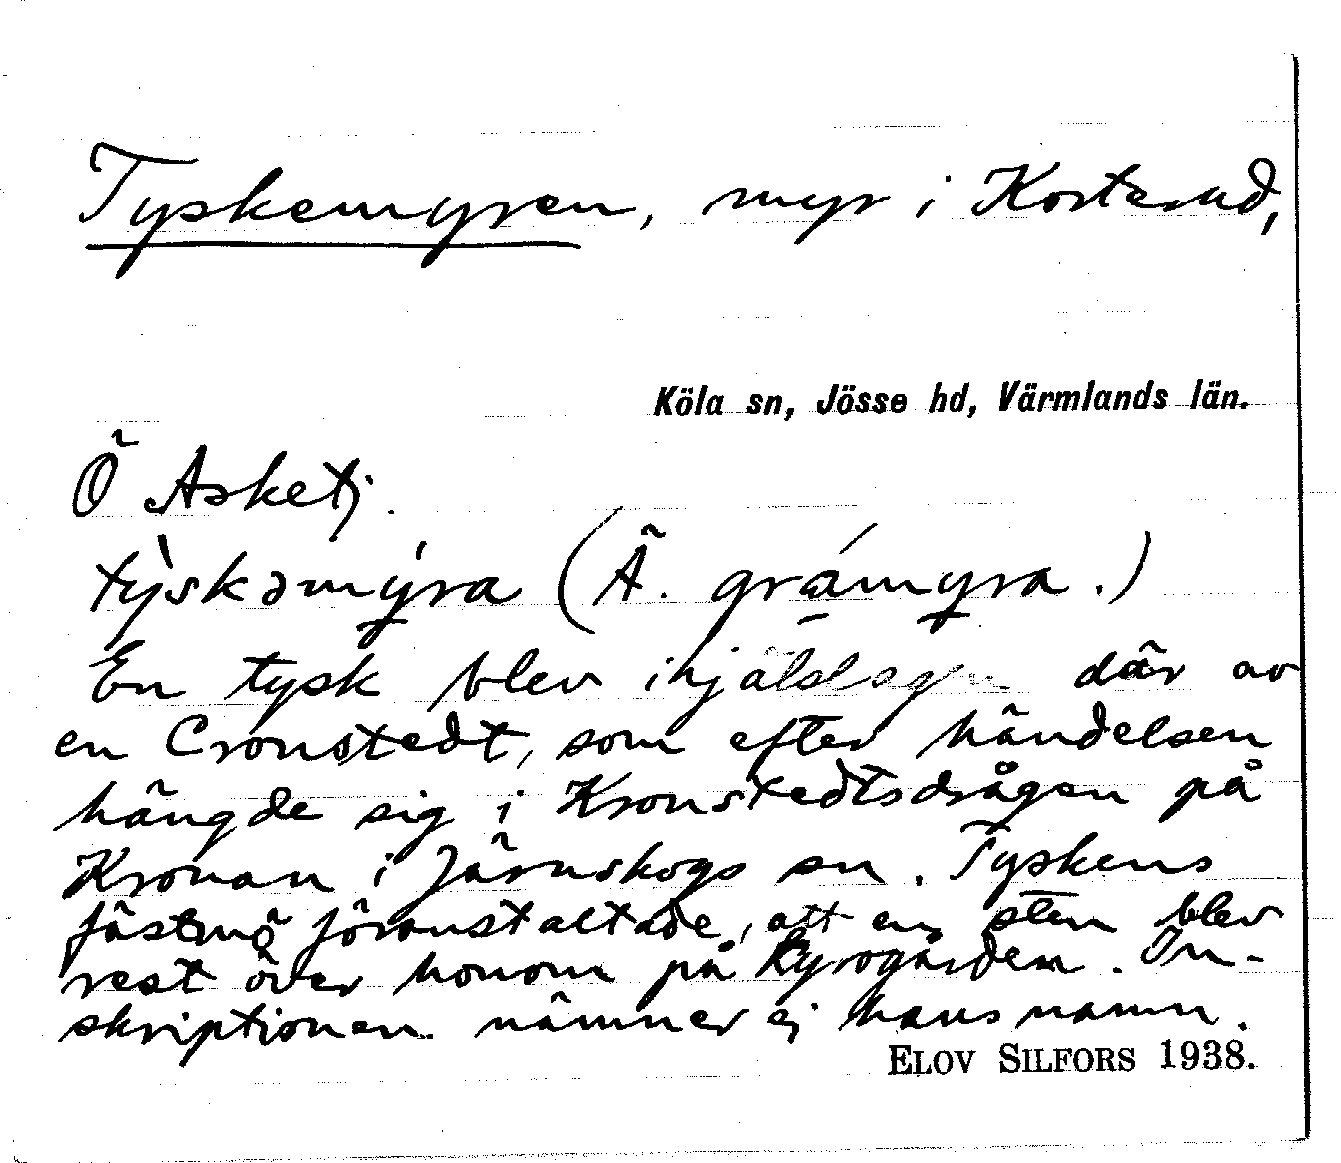 Tyskemyren, myr i Korterud,
Köla sn, Jösse hd, Värmlands län.
Ö Asketj.
tỳskəmýra (Ä. grámyra.)
En tysk blev ihjälslagen där av
en Cronstedt, som efter händelsen
hängde sig i Kronstedtsdrågen på
Kronan i Järnskogs sn. Tyskens
fästmö föranstaltade, att en sten blev
rest över honom på kyrogården. In-
skriptionen nämner ej hans namn.
ELOV SILFORS 1938.